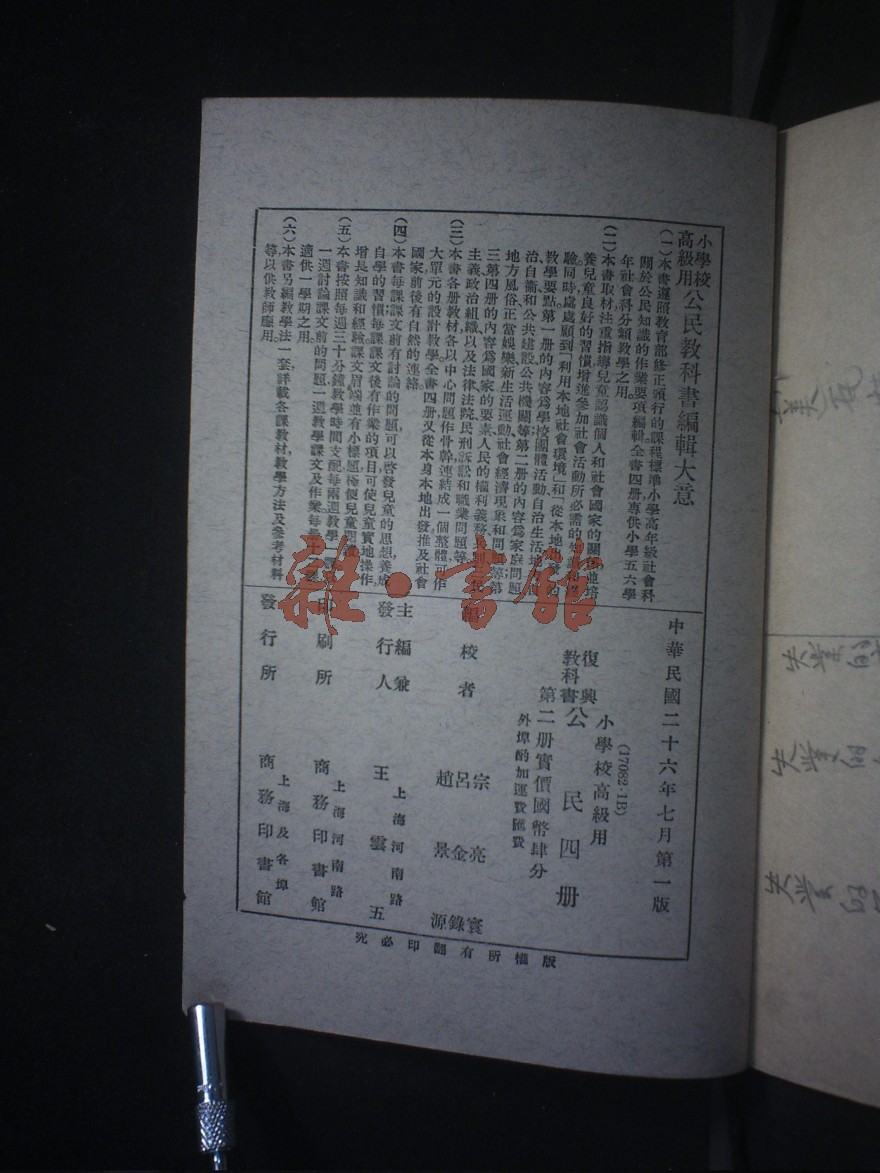 小學校高級用公民教科書編輯大意
(一)本書遵照教育部修正頒行的課程標準小學高年級社會科
關於公民知識的作業要項編輯全書四册專供小學五六學
年社會科分類教學之用。
(二)本書取材注重指導兒童認識個人和社會國家的關係並培
養兒童良好的習慣增進參加社會活動所必需的
驗同時處處顧到「利用本地社會環境」和「從本地出發」的
教學要點第一册的內容爲學校團體活動、自治生活地方
治自衞和公共建設公共機關等第二册的內容爲家庭問題、
地方風俗正當娛樂新生活運動社會經濟現象和問題等第
三第四册的內容爲國家的要素人民的權利義務
主義政治組織以及法律法院民刑訴訟和職業問題等。
(三)本書各册教材各以中心問題作骨幹連結成一個整體可作
大單元的設計教學全書四册又從本身本地出發推及社會
國家前後有自然的連絡。
(四)本書每課課文前有討論的問題可以啓發兒童的思想養成
自學的習慣每課課文後有作業的項目可使兒童實地操作,
增長知識和經驗課文眉端並有小標題極便兒童閱讀。
(五)本書按照每週三十分鐘教學時間支配每兩週教學一課
一週討論課文前的問題一週教學課文及作業每册
適供一學期之用。
(六)本書另編教學法一套詳載各課教材教學方法及參考材料
等以供教師應用。
中華民國二十六年七月第一版
(17082·1B)
小學校高級用
復興教科書 公民四册
第二册實價國幣肆分
外埠酌加運費匯費
校者
宗亮寰
呂金錄
趙景源
主編兼發行人
上海河南路
王雲五
印刷所
上海河南路
商務印書館
發行所
上海及各埠
商務印書館
版權所有翻印必究
雜·書館
失業的
失業的
失業的